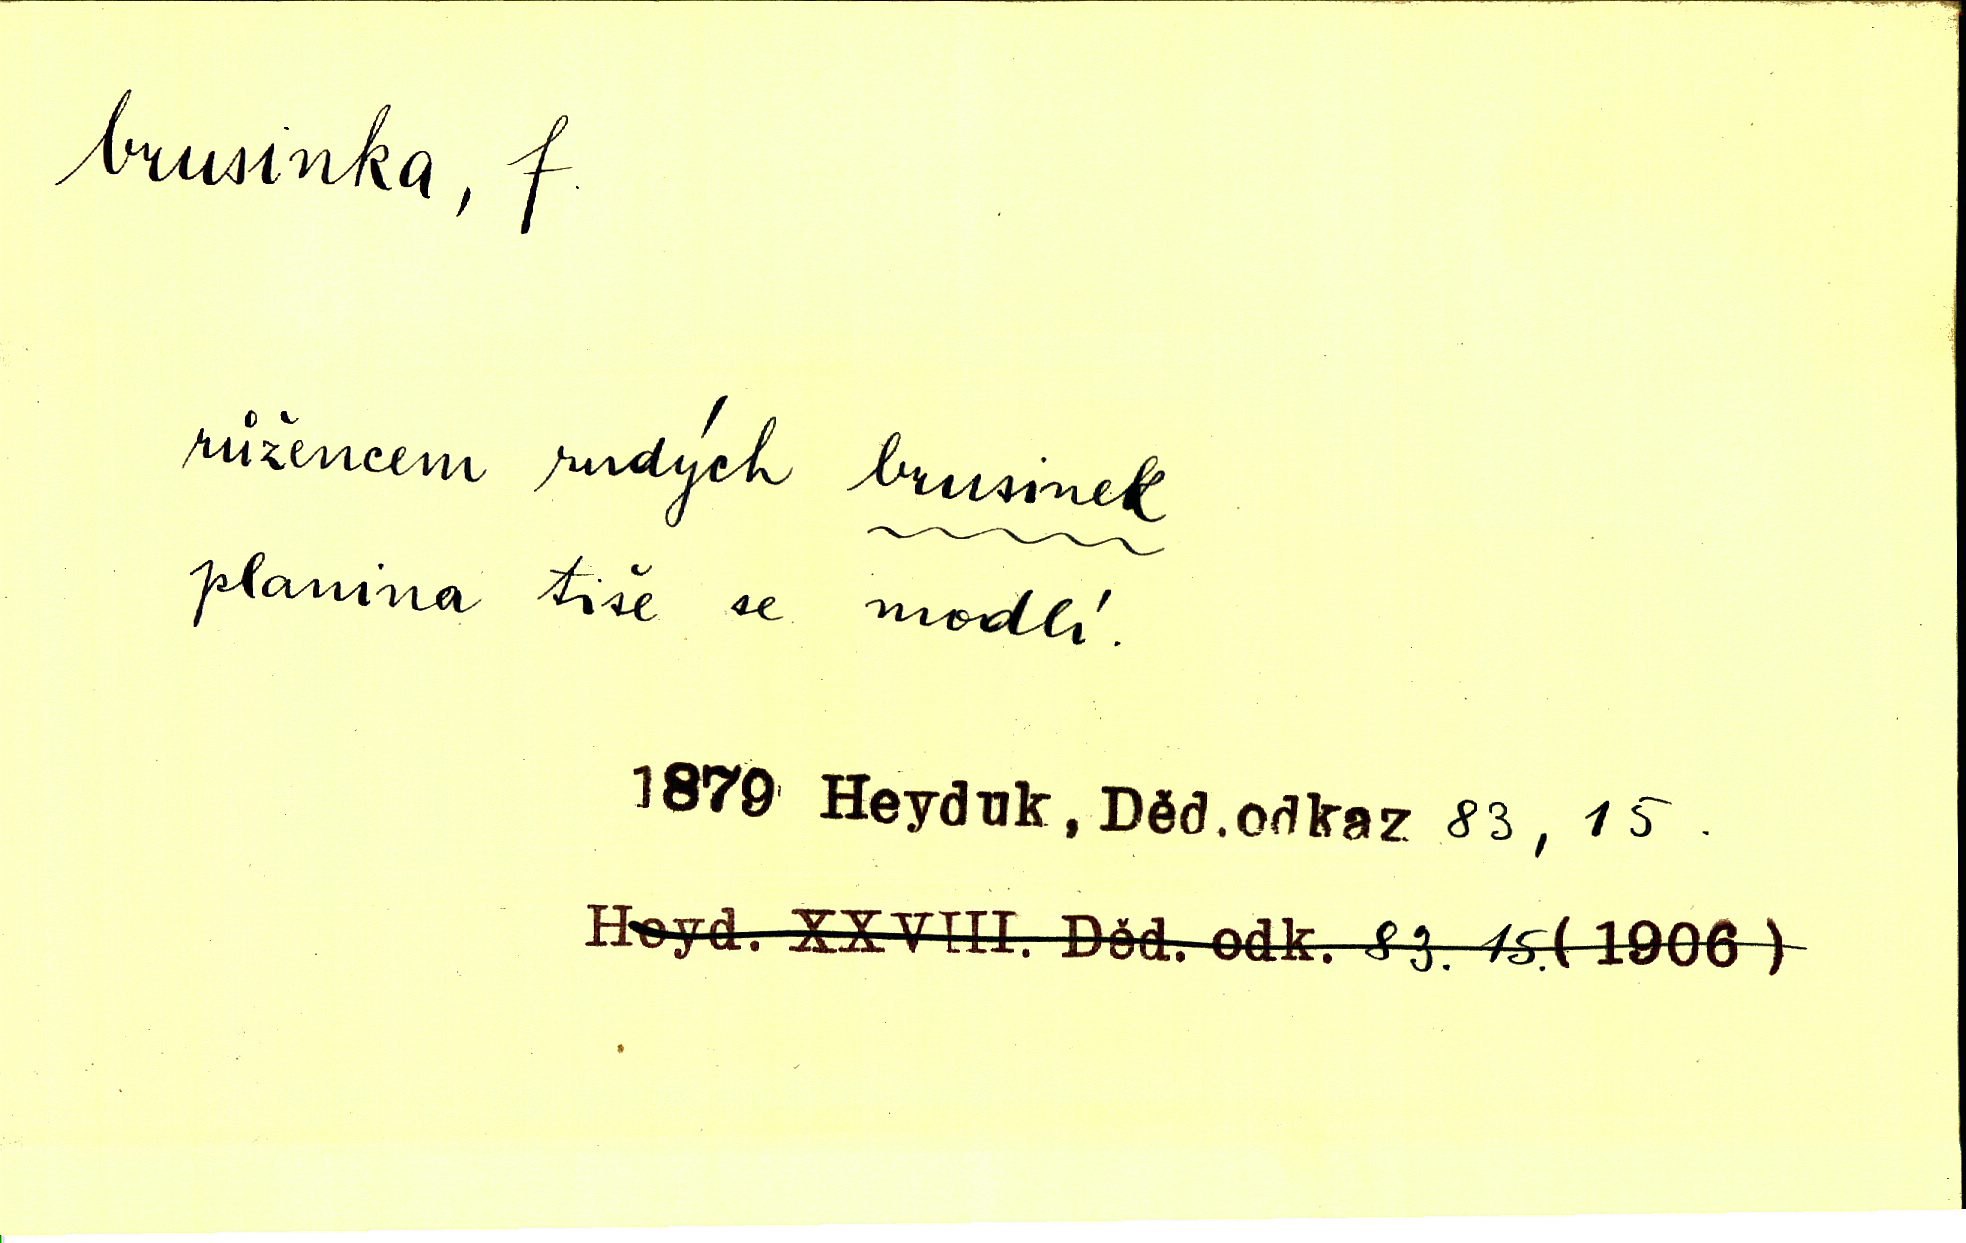 brusinka, f.
růžencem rudých brusinek
planina tiše se modlí.
1879 Heyduk, Děd.odkaz 83, 15.
Heyd. XXVIII. Děd. odk. 83. 15. (1906)